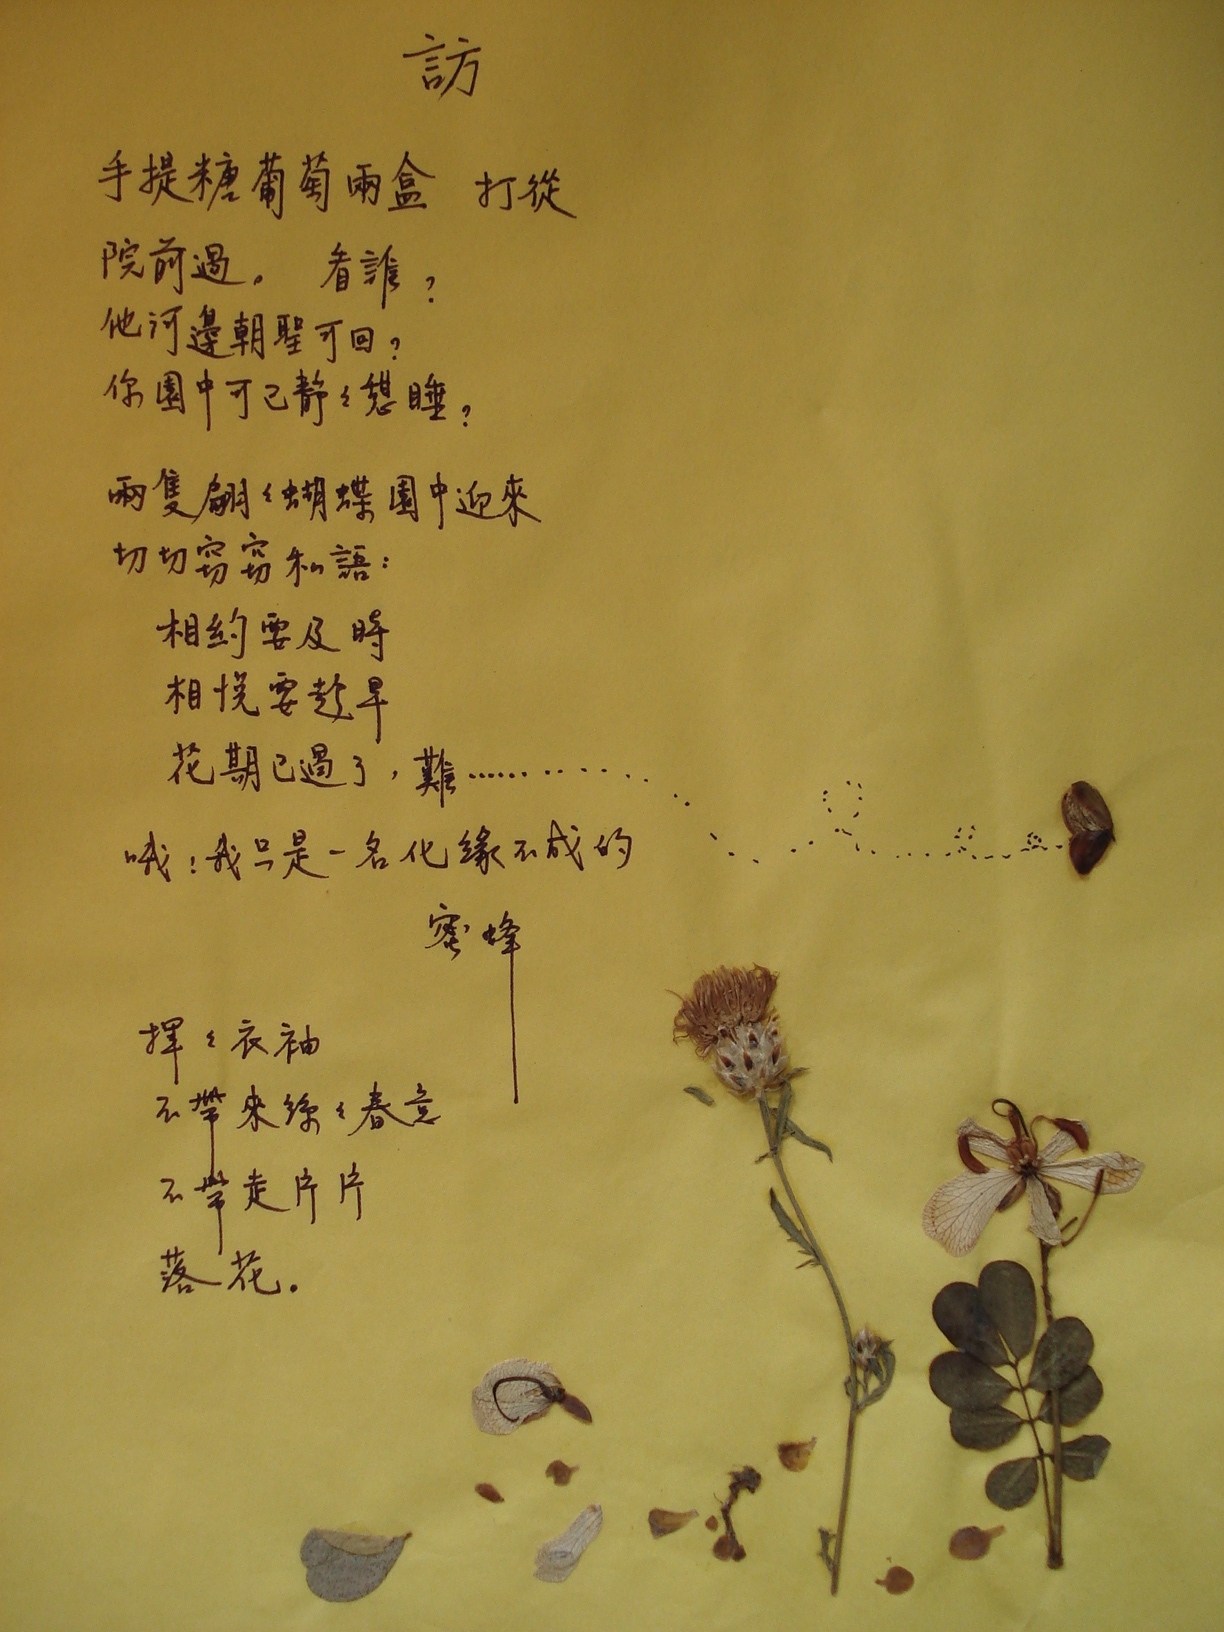 訪
手提糖葡萄兩盒 打從
院前過。 看誰?
他河邊朝聖可回?
你園中可已靜々憇睡?
兩隻翩々蝴蝶園中迎來
切切窃窃私語:
相約要及時
相悅要趁早
花期已過了,難……
哦!我只是一名化緣不成的
蜜蜂
揮々衣袖
不帶來綿々春意
不帶走片片
落花。